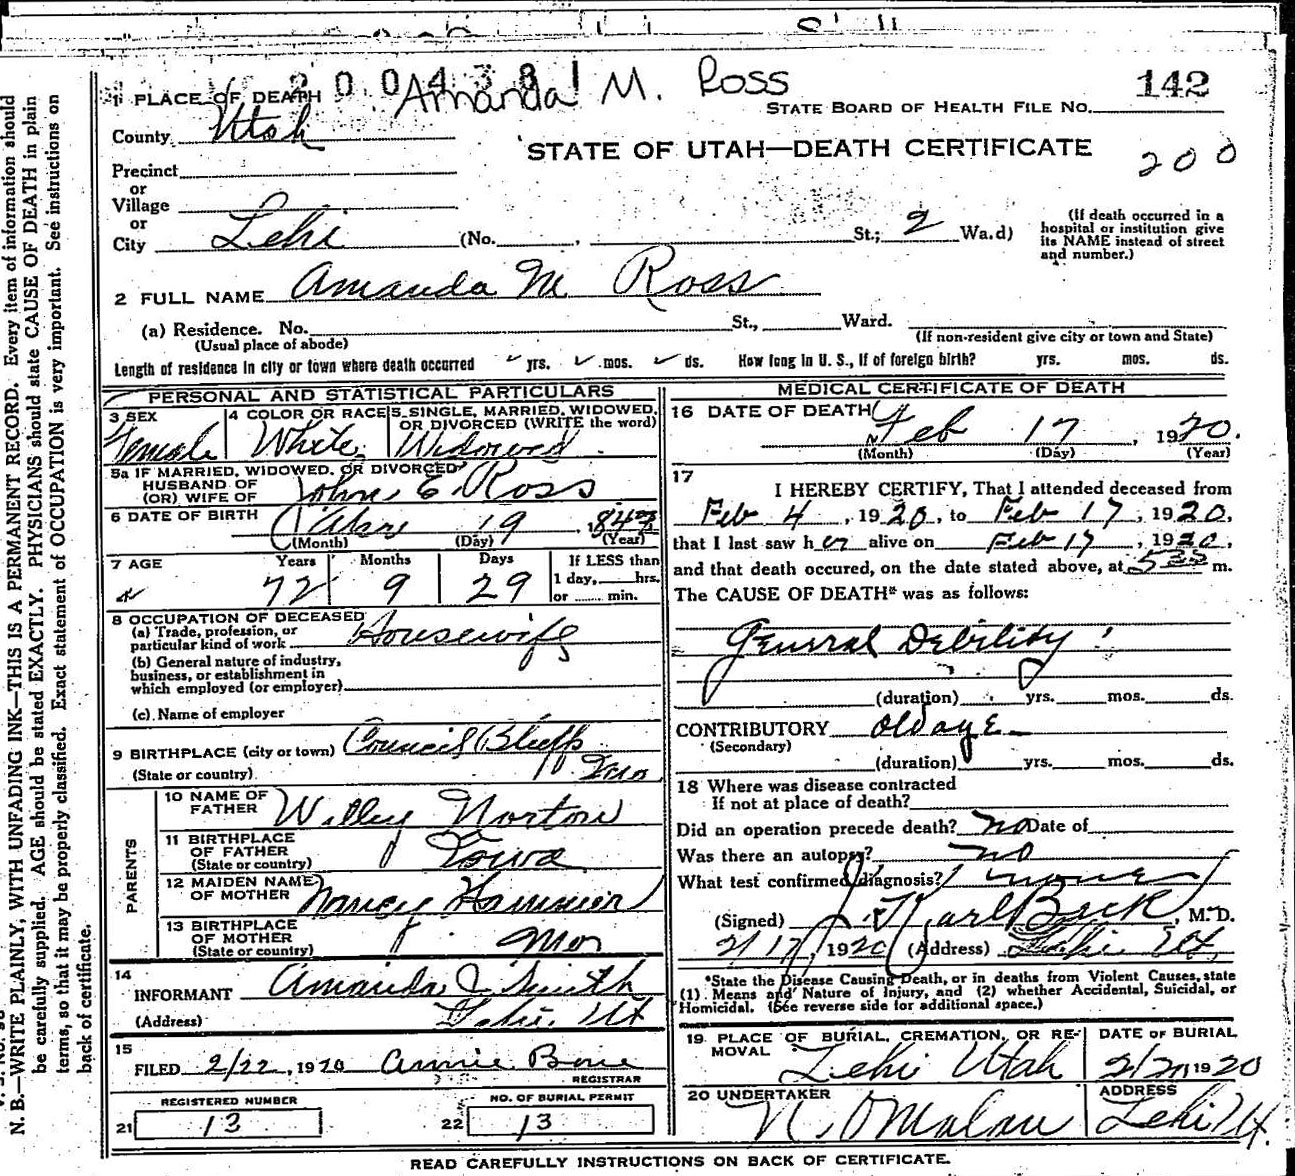 2004381
Amanda M. Ross
142
1 PLACE OF DEATH
STATE BOARD OF HEALTH FILE NO.
County Utah
STATE OF UTAH—DEATH CERTIFICATE
200
Precinct
or
Village
or
City Lehi (No. , St.; 2 Wa.d)
(If death occurred in a
hospital or institution give
its NAME instead of street
and number.)
2 FULL NAME Amanda M Ross
(a) Residence. No. St., Ward.
(Usual place of abode) (If non-resident give city or town and State)
Length of residence in city or town where death occurred yrs. mos. ds. How long in U. S., if of foreign birth? yrs. mos. ds.
PERSONAL AND STATISTICAL PARTICULARS
3 SEX Female
4 COLOR OR RACE White
5 SINGLE, MARRIED, WIDOWED,
OR DIVORCED (WRITE the word)
Widowed
5a IF MARRIED, WIDOWED, OR DIVORCED
HUSBAND OF
(OR) WIFE OF John E. Ross
6 DATE OF BIRTH 19
(Month) (Day) (Year)
7 AGE Years Months Days If LESS than
72 9 29 1 day, hrs.
or min.
8 OCCUPATION OF DECEASED
(a) Trade, profession, or
particular kind of work Housewife
(b) General nature of industry,
business, or establishment in
which employed (or employer)
(c) Name of employer
9 BIRTHPLACE (city or town) Council Bluffs
(State or country)
PARENTS
10 NAME OF
FATHER Willey Norton
11 BIRTHPLACE
OF FATHER
(State or country) Iowa
12 MAIDEN NAME
OF MOTHER Nancy Hammer
13 BIRTHPLACE
OF MOTHER
(State or country) Mo
14
INFORMANT Amanda J Smith
(Address) Lehi. Ut
15
FILED 2/22, 1920 Annie Bone
REGISTRAR
REGISTERED NUMBER NO. OF BURIAL PERMIT
21 13 22 13
MEDICAL CERTIFICATE OF DEATH
16 DATE OF DEATH
Feb 17, 1920.
(Month) (Day) (Year)
17
I HEREBY CERTIFY, That I attended deceased from
Feb 4, 1920, to Feb 17, 1920,
that I last saw her alive on Feb 17, 1920,
and that death occured, on the date stated above, at 535 m.
The CAUSE OF DEATH* was as follows:
General Debility
(duration) yrs. mos. ds.
CONTRIBUTORY Old age
(Secondary)
(duration) yrs. mos. ds.
18 Where was disease contracted
If not at place of death?
Did an operation precede death? no Date of
Was there an autopsy? no
What test confirmed diagnosis? none
(Signed) J. Karl Beck, M. D.
2/17, 1920 (Address) Lehi Ut.
*State the Disease Causing Death, or in deaths from Violent Causes, state
(1) Means and Nature of Injury, and (2) whether Accidental, Suicidal, or
Homicidal. (See reverse side for additional space.)
19 PLACE OF BURIAL, CREMATION, OR RE-
MOVAL
Lehi Utah
DATE OF BURIAL
2/20 1920
20 UNDERTAKER
N. O Malan
ADDRESS
Lehi Ut.
READ CAREFULLY INSTRUCTIONS ON BACK OF CERTIFICATE.
N. B.—WRITE PLAINLY, WITH UNFADING INK—THIS IS A PERMANENT RECORD. Every item of information should
be carefully supplied. AGE should be stated EXACTLY. PHYSICIANS should state CAUSE OF DEATH in plain
terms, so that it may be properly classified. Exact statement of OCCUPATION is very important. See instructions on
back of certificate.